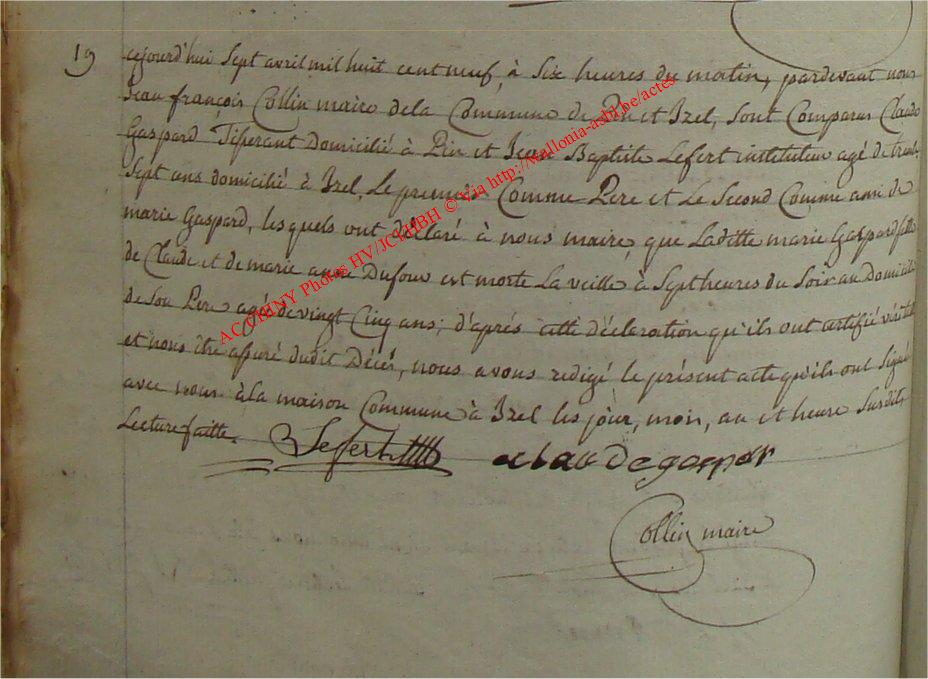 19 cejourd'hui Sept avril mil huit cent neuf, à Six heures du matin, pardevant nous
Jean françois Collin maire dela Commune de Pin et Izel, sont Comparus Claude
Gaspard Tisserant Domicilié à Pin et Jean Baptiste Lefert instituteur agé de trente
Sept ans domicilié à Izel, Le premier Comme Pere et Le Second Comme ami de
marie Gaspard, les quels ont déclaré à nous maire, que Laditte marie Gaspard fille
de Claude et de marie anne Dufour est morte La veille à Sept heures du Soir au Domicile
de Son Pere agé de vingt Cinq ans; d'après cette déclaration qu'ils ont certifié véritable
et nous être assuré dudit Décés, nous avons redigé le présent acte qu'ils ont Signé
avec nous àla maison Commune à Izel les jour, mois, an et heure Susdits
Lecture faitte.
Lefert claudegaspar
Collin maire
ACCHINY Photos HV/JCVHBH © Via http://Mallonia-asbl.be/actes